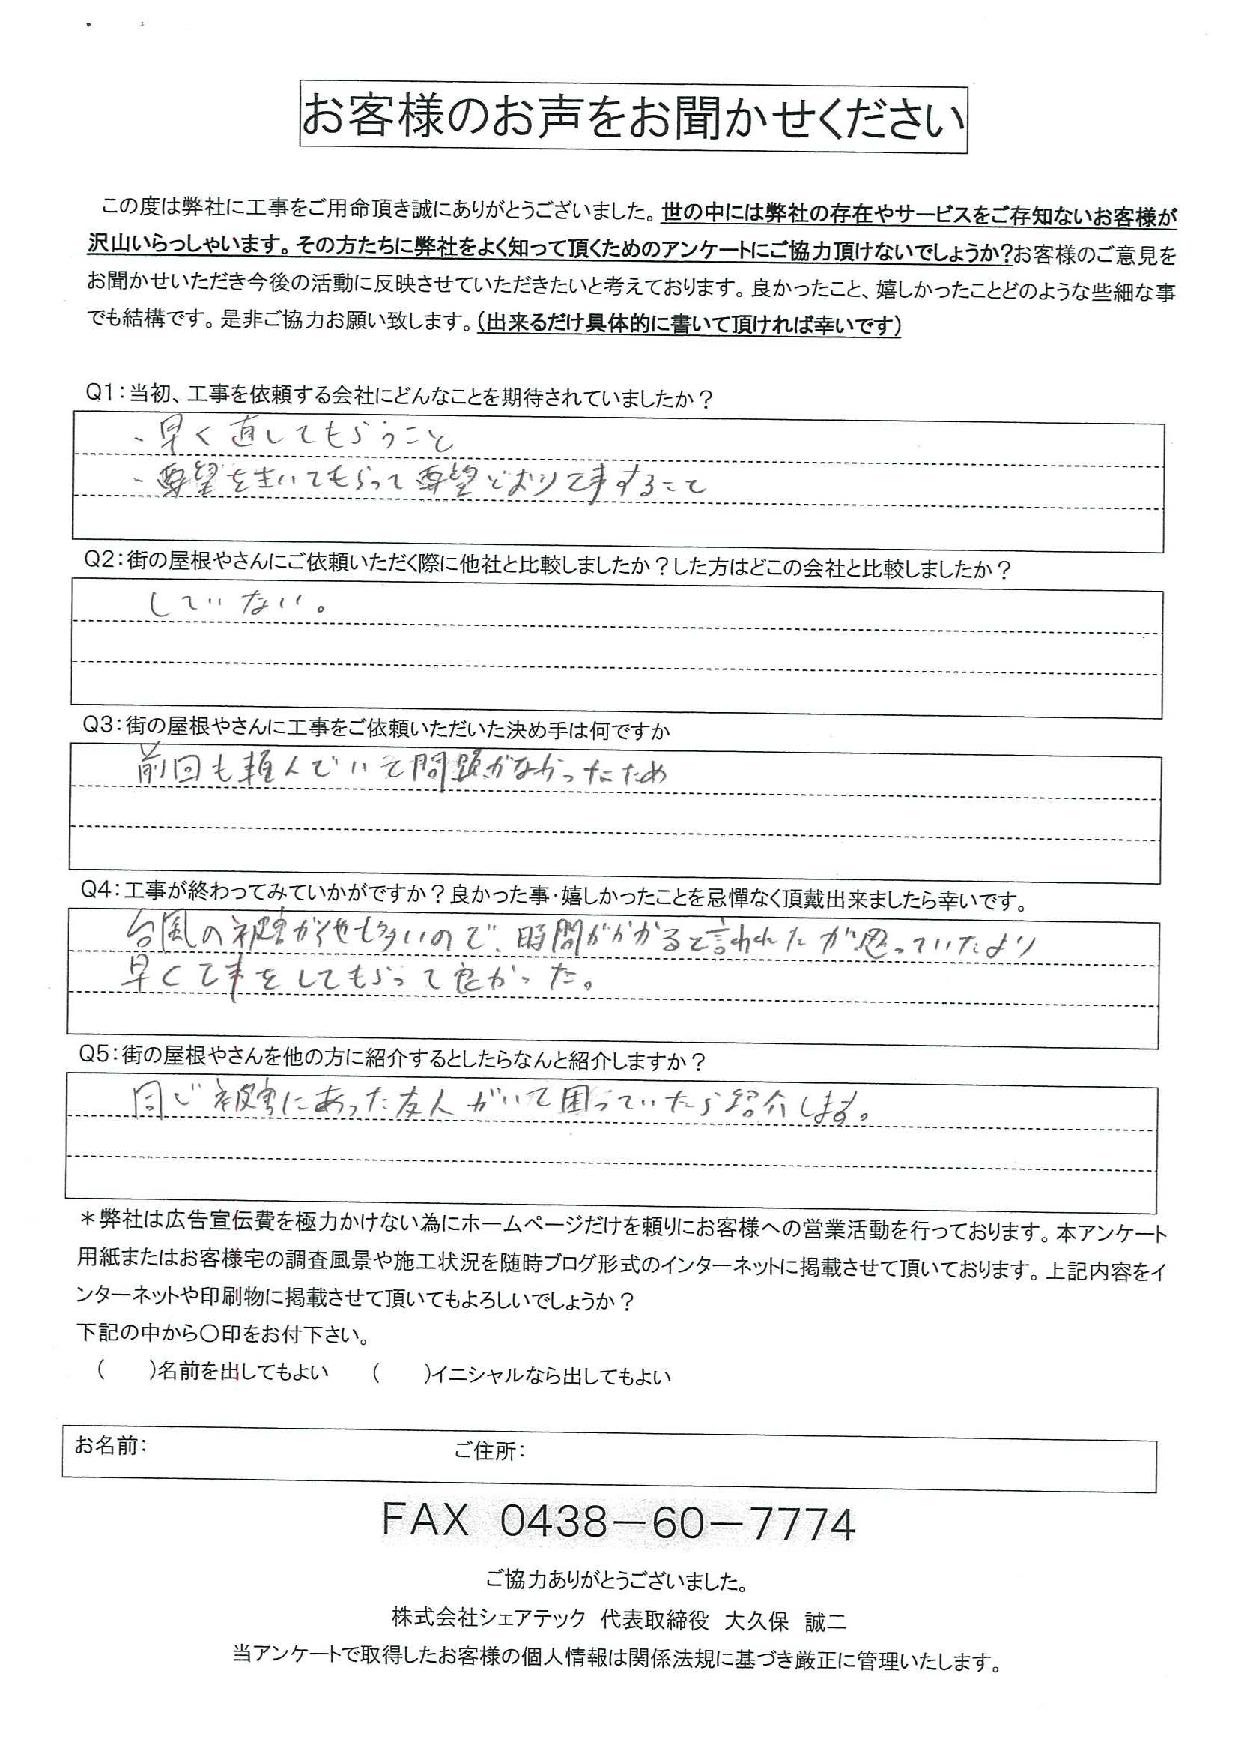 お客様のお声をお聞かせください
この度は弊社に工事をご用命頂き誠にありがとうございました。世の中には弊社の存在やサービスをご存知ないお客様が
沢山いらっしゃいます。その方たちに弊社をよく知って頂くためのアンケートにご協力頂けないでしょうか?お客様のご意見を
お聞かせいただき今後の活動に反映させていただきたいと考えております。良かったこと、嬉しかったことどのような些細な事
でも結構です。是非ご協力お願い致します。(出来るだけ具体的に書いて頂ければ幸いです)
Q1:当初、工事を依頼する会社にどんなことを期待されていましたか?
、早く直してもらうこと
、要望を聞いてもらって要望どおり工事すること
Q2:街の屋根やさんにご依頼いただく際に他社と比較しましたか?した方はどこの会社と比較しましたか?
していない。
Q3:街の屋根やさんに工事をご依頼いただいた決め手は何ですか
前回も頼んでいて問題がなかったため
Q4:工事が終わってみていかがですか?良かった事・嬉しかったことを忌憚なく頂戴出来ましたら幸いです。
台風の被害が他も多いので、時間がかかると言われたが思っていたより
早く工事をしてもらって良かった。
Q5:街の屋根やさんを他の方に紹介するとしたらなんと紹介しますか?
同じ被害にあった友人がいて困っていたら紹介します。
*弊社は広告宣伝費を極力かけない為にホームページだけを頼りにお客様への営業活動を行っております。本アンケート
用紙またはお客様宅の調査風景や施工状況を随時ブログ形式のインターネットに掲載させて頂いております。上記内容をイ
ンターネットや印刷物に掲載させて頂いてもよろしいでしょうか?
下記の中から〇印をお付下さい。
(　　)名前を出してもよい　　(　　)イニシャルなら出してもよい
お名前:　ご住所:
FAX 0438-60-7774
ご協力ありがとうございました。
株式会社シェアテック 代表取締役 大久保 誠二
当アンケートで取得したお客様の個人情報は関係法規に基づき厳正に管理いたします。